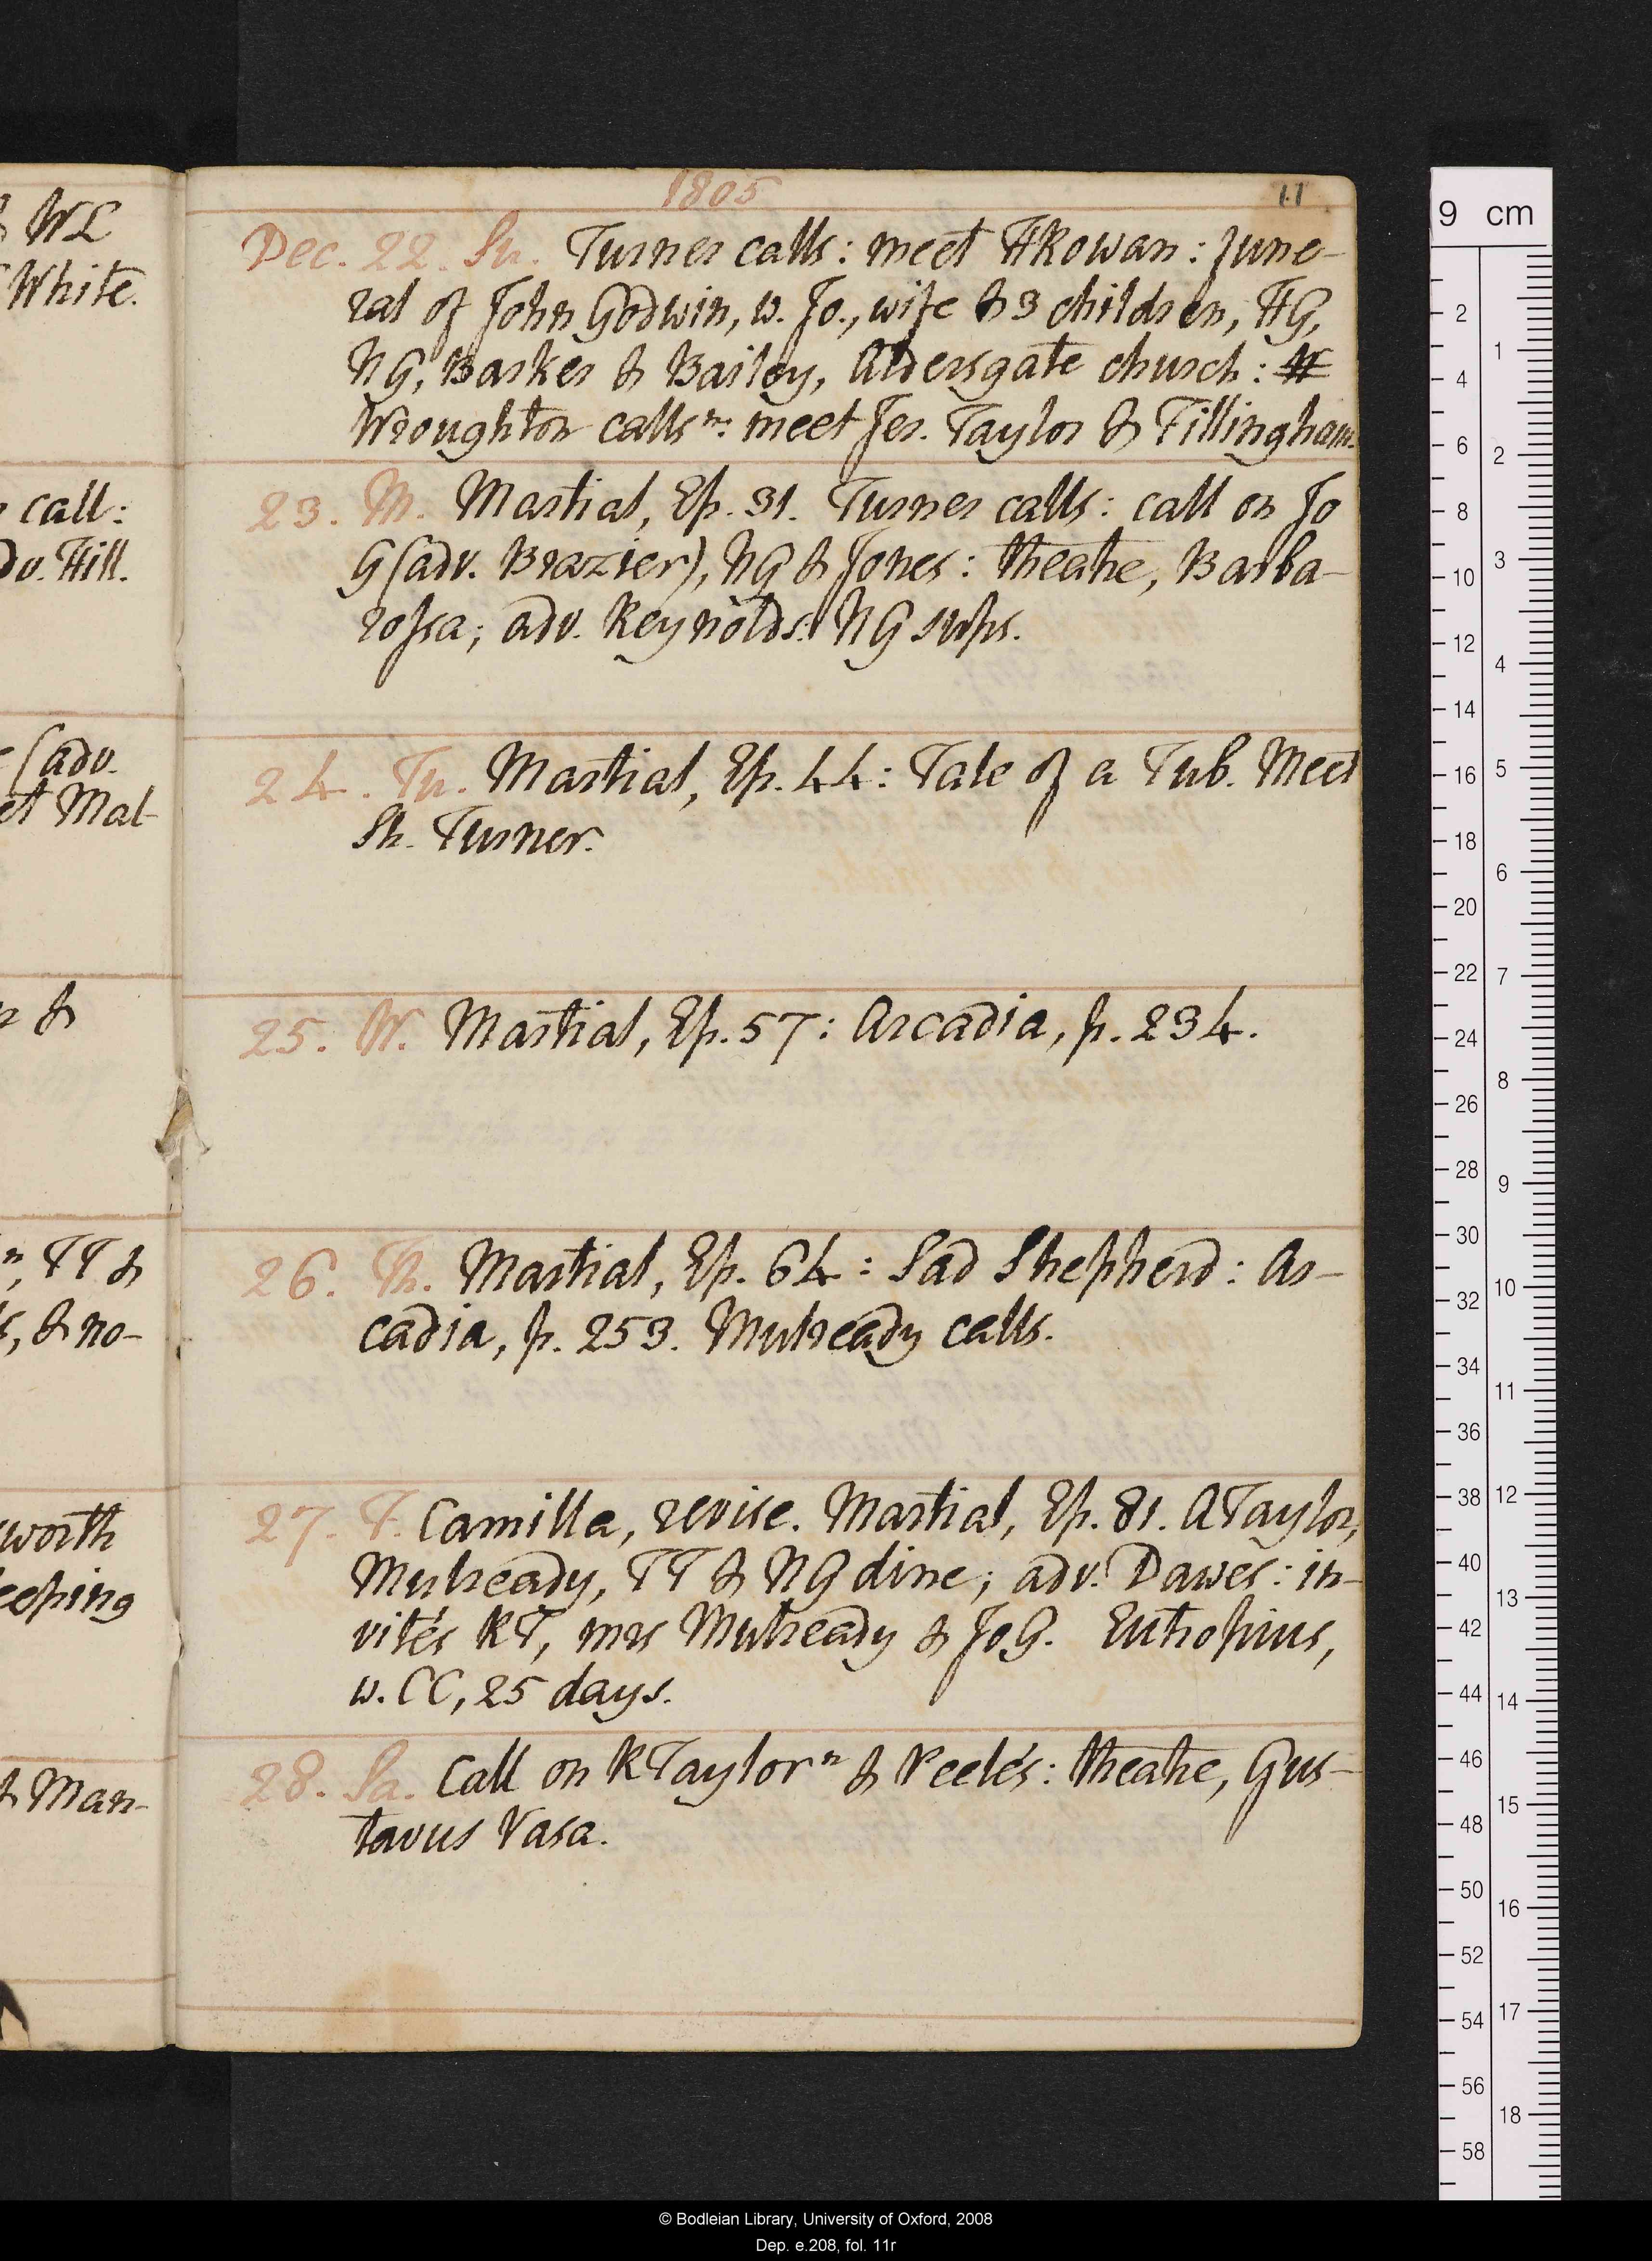 1805
11
Dec. 22. Su. Turner calls: meet HRowan: fune-
ral of John Godwin, w. Jo., wife & 3 children, HG,
NG, Barker & Bailey, Aldersgate church:
Wroughton calls n: meet Jer. Taylor & Fillingham.
23. M. Martial, Ep. 31. Turner calls: call on Jo
G (adv. Brazier), NG & Jones: theatre, Barba-
rossa; adv. Reynolds: NG sups.
24. Tu. Martial, Ep. 44: Tale of a Tub. Meet
Sh. Turner.
25. W. Martial, Ep. 57: Arcadia, p. 234.
26. Th. Martial, Ep. 64: Sad Shepherd: Ar-
cadia, p. 253. Mulready calls.
27. F. Camilla, revise. Martial, Ep. 81. ATaylor,
Mulready, TT & NG dine; adv. Dawes: in-
vités KT, mrs Mulready & Jo. G. Eutropius,
w. CC, 25 days.
28. Sa. Call on KTaylor n & Peele's: theatre, Gus-
tavus Vasa.
WL
White.
call:
dv. Hill.
(adv.
et Mal-
&
n, TT &
, & no-
worth
eeping
& Man-
9 cm
2
4
6
8
10
12
14
16
18
20
22
24
26
28
30
32
34
36
38
40
42
44
46
48
50
52
54
56
58
1
2
3
4
5
6
7
8
9
10
11
12
13
14
15
16
17
18
© Bodleian Library, University of Oxford, 2008
Dep. e.208, fol. 11r